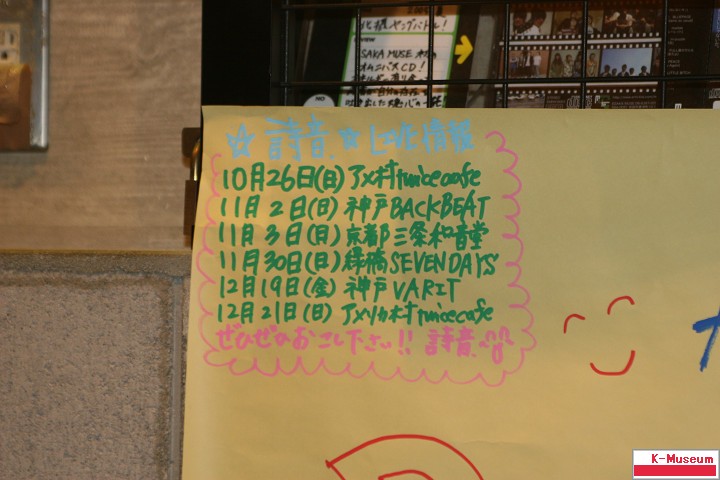 SAKA MUSE
オムニバスCD!
☆詩音☆Live情報
10月26日(日)アメ村twice cafe
11月2日(日)神戸BACKBEAT
11月3日(月)京都三条和音堂
11月30日(日)緑橋SEVENDAYS
12月19日(金)神戸VARIT
12月21日(日)アメリカ村twice cafe
ぜひぜひおこし下さい!! 詩音
K-Museum